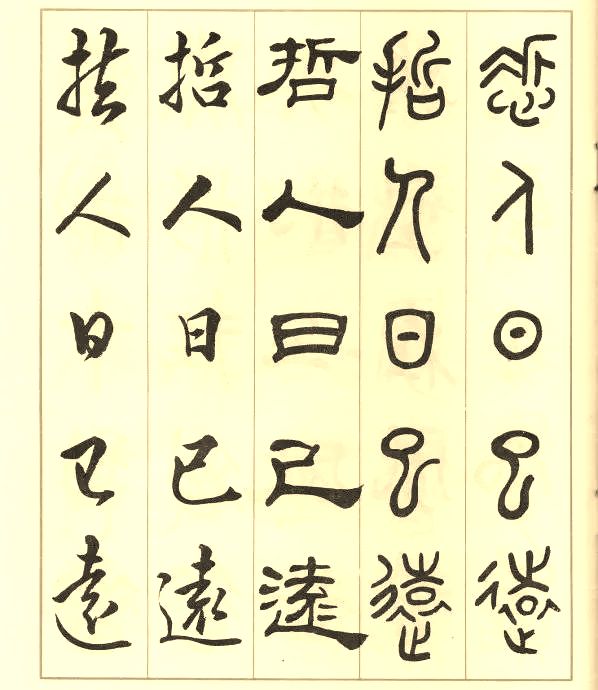 悊人日已遠
哲人日已遠
哲人日已遠
哲人日已遠
哲人日已遠